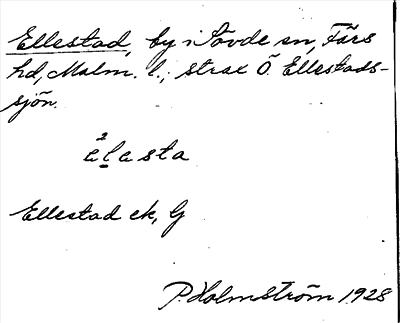 Ellestad, by i Sövde sn, Färs
hd, Malm. l.; strax Ö. Ellestads-
sjön.
2
ęl̠esta
Ellestad ek, G
P. Holmström 1928